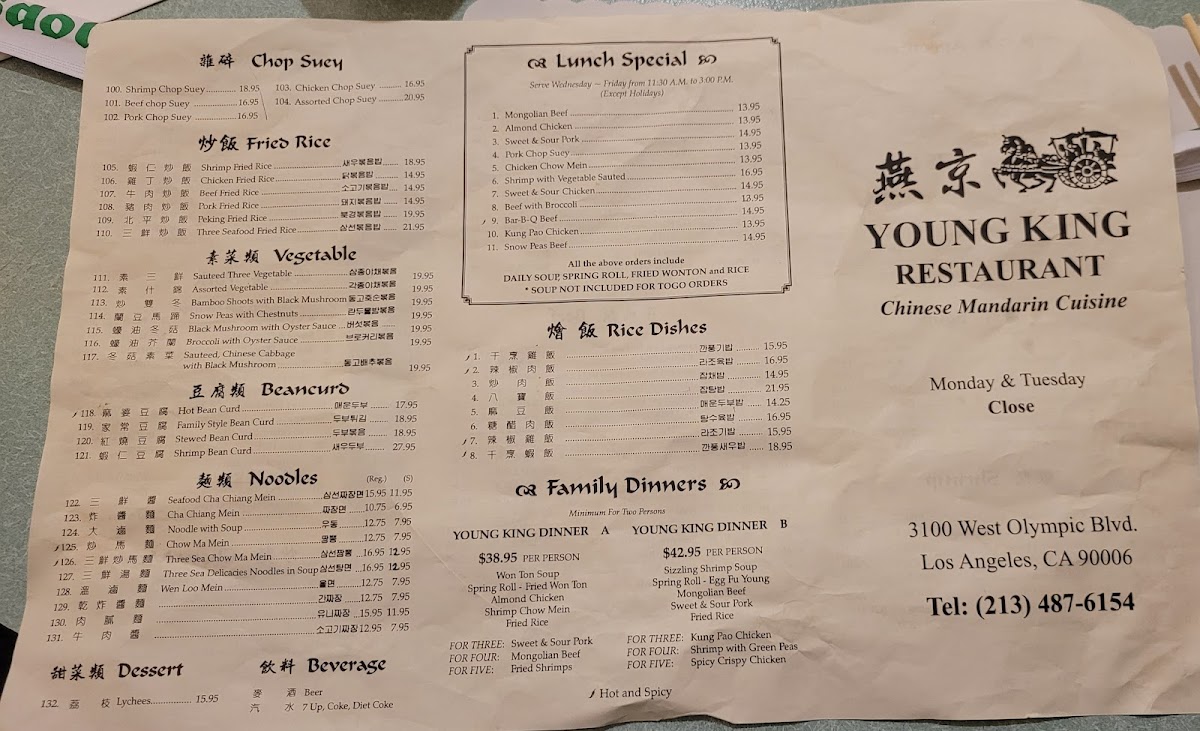 雜碎 Chop Suey
100. Shrimp Chop Suey ............ 18.95 103. Chicken Chop Suey ......... 16.95
101. Beef chop Suey ............ 16.95 104. Assorted Chop Suey ......... 20.95
102. Pork Chop Suey ............ 16.95
炒飯 Fried Rice
105. 蝦仁炒飯 Shrimp Fried Rice ............ 새우볶음밥 ...... 18.95
106. 雞丁炒飯 Chicken Fried Rice ............ 닭볶음밥 ...... 14.95
107. 牛肉炒飯 Beef Fried Rice ............ 소고기볶음밥 ...... 14.95
108. 豬肉炒飯 Pork Fried Rice ............ 돼지볶음밥 ...... 14.95
109. 北平炒飯 Peking Fried Rice ............ 북경볶음밥 ...... 19.95
110. 三鮮炒飯 Three Seafood Fried Rice ............ 삼선볶음밥 ...... 21.95
素菜類 Vegetable
111. 素三鮮 Sauteed Three Vegetable ............ 삼종야채볶음 19.95
112. 素什錦 Assorted Vegetable ............ 각종야채볶음 19.95
113. 炒雙冬 Bamboo Shoots with Black Mushroom 동고죽순볶음 19.95
114. 蘭豆馬蹄 Snow Peas with Chestnuts ............ 란두물밤볶음 19.95
115. 蠔油冬菇 Black Mushroom with Oyster Sauce ... 버섯볶음 ... 19.95
116. 蠔油芥蘭 Broccoli with Oyster Sauce ............ 브로커리볶음 19.95
117. 冬菇素菜 Sauteed, Chinese Cabbage
with Black Mushroom ............ 동고배추볶음 19.95
豆腐類 Beancurd
118. 麻婆豆腐 Hot Bean Curd ............ 매운두부 ...... 17.95
119. 家常豆腐 Family Style Bean Curd ............ 두부튀김 ...... 18.95
120. 紅燒豆腐 Stewed Bean Curd ............ 두부볶음 ...... 18.95
121. 蝦仁豆腐 Shrimp Bean Curd ............ 새우두부 ...... 27.95
麵類 Noodles (Reg.) (S)
122. 三鮮醬 Seafood Cha Chiang Mein ............ 삼선짜장면 15.95 11.95
123. 炸醬麵 Cha Chiang Mein ............ 짜장면 ...... 10.75 6.95
124. 大滷麵 Noodle with Soup ............ 우동 ...... 12.75 7.95
125. 炒馬麵 Chow Ma Mein ............ 짬뽕 ...... 12.75 7.95
126. 三鮮炒馬麵 Three Sea Chow Ma Mein ............ 삼선짬뽕 ... 16.95 12.95
127. 三鮮湯麵 Three Sea Delicacies Noodles in Soup 삼선탕면 ... 16.95 12.95
128. 溫滷麵 Wen Loo Mein ............ 울면 ...... 12.75 7.95
129. 乾炸醬麵 ............ 간짜장 ...... 12.75 7.95
130. 肉膩麵 ............ 유니짜장 ... 15.95 11.95
131. 牛肉醬 ............ 소고기짜장 12.95 7.95
甜菜類 Dessert
132. 荔枝 Lychees ............ 15.95
飲料 Beverage
麥酒 Beer
汽水 7 Up, Coke, Diet Coke
Lunch Special
Serve Wednesday — Friday from 11:30 A.M. to 3:00 P.M.
(Except Holidays)
1. Mongolian Beef ............ 13.95
2. Almond Chicken ............ 13.95
3. Sweet & Sour Pork ............ 14.95
4. Pork Chop Suey ............ 13.95
5. Chicken Chow Mein ............ 13.95
6. Shrimp with Vegetable Sauted ............ 16.95
7. Sweet & Sour Chicken ............ 14.95
8. Beef with Broccoli ............ 13.95
9. Bar-B-Q Beef ............ 14.95
10. Kung Pao Chicken ............ 13.95
11. Snow Peas Beef ............ 14.95
All the above orders include
DAILY SOUP, SPRING ROLL, FRIED WONTON and RICE
* SOUP NOT INCLUDED FOR TOGO ORDERS
燴飯 Rice Dishes
1. 干烹雞飯 ............ 깐풍기밥 ...... 15.95
2. 辣椒肉飯 ............ 라조육밥 ...... 16.95
3. 炒肉飯 ............ 잡채밥 ...... 14.95
4. 八寶飯 ............ 잡탕밥 ...... 21.95
5. 麻豆飯 ............ 매운두부밥 ... 14.25
6. 糖醋肉飯 ............ 탕수육밥 ...... 16.95
7. 辣椒雞飯 ............ 라조기밥 ...... 15.95
8. 干烹蝦飯 ............ 깐풍새우밥 ... 18.95
Family Dinners
Minimum For Two Persons
YOUNG KING DINNER A
$38.95 PER PERSON
Won Ton Soup
Spring Roll - Fried Won Ton
Almond Chicken
Shrimp Chow Mein
Fried Rice
FOR THREE: Sweet & Sour Pork
FOR FOUR: Mongolian Beef
FOR FIVE: Fried Shrimps
YOUNG KING DINNER B
$42.95 PER PERSON
Sizzling Shrimp Soup
Spring Roll - Egg Fu Young
Mongolian Beef
Sweet & Sour Pork
Fried Rice
FOR THREE: Kung Pao Chicken
FOR FOUR: Shrimp with Green Peas
FOR FIVE: Spicy Crispy Chicken
Hot and Spicy
燕京
YOUNG KING
RESTAURANT
Chinese Mandarin Cuisine
Monday & Tuesday
Close
3100 West Olympic Blvd.
Los Angeles, CA 90006
Tel: (213) 487-6154